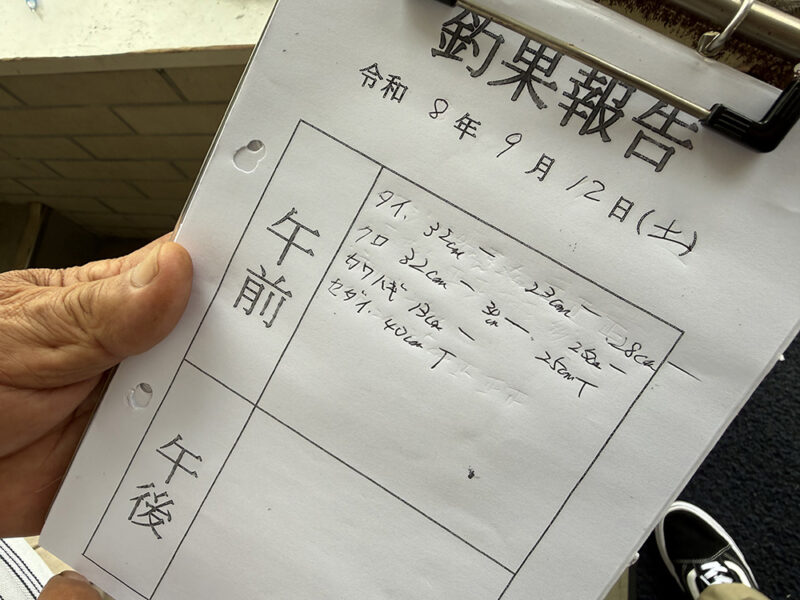 釣果報告
令和 8年 9月 12日(土)
午前
タイ. 32cm ー 23cm ー 28cm ー
クロ 32cm ー 30cm ー. 25cm ー
カワハギ 13cm ー 25cm T
セダイ. 40cm T
午後